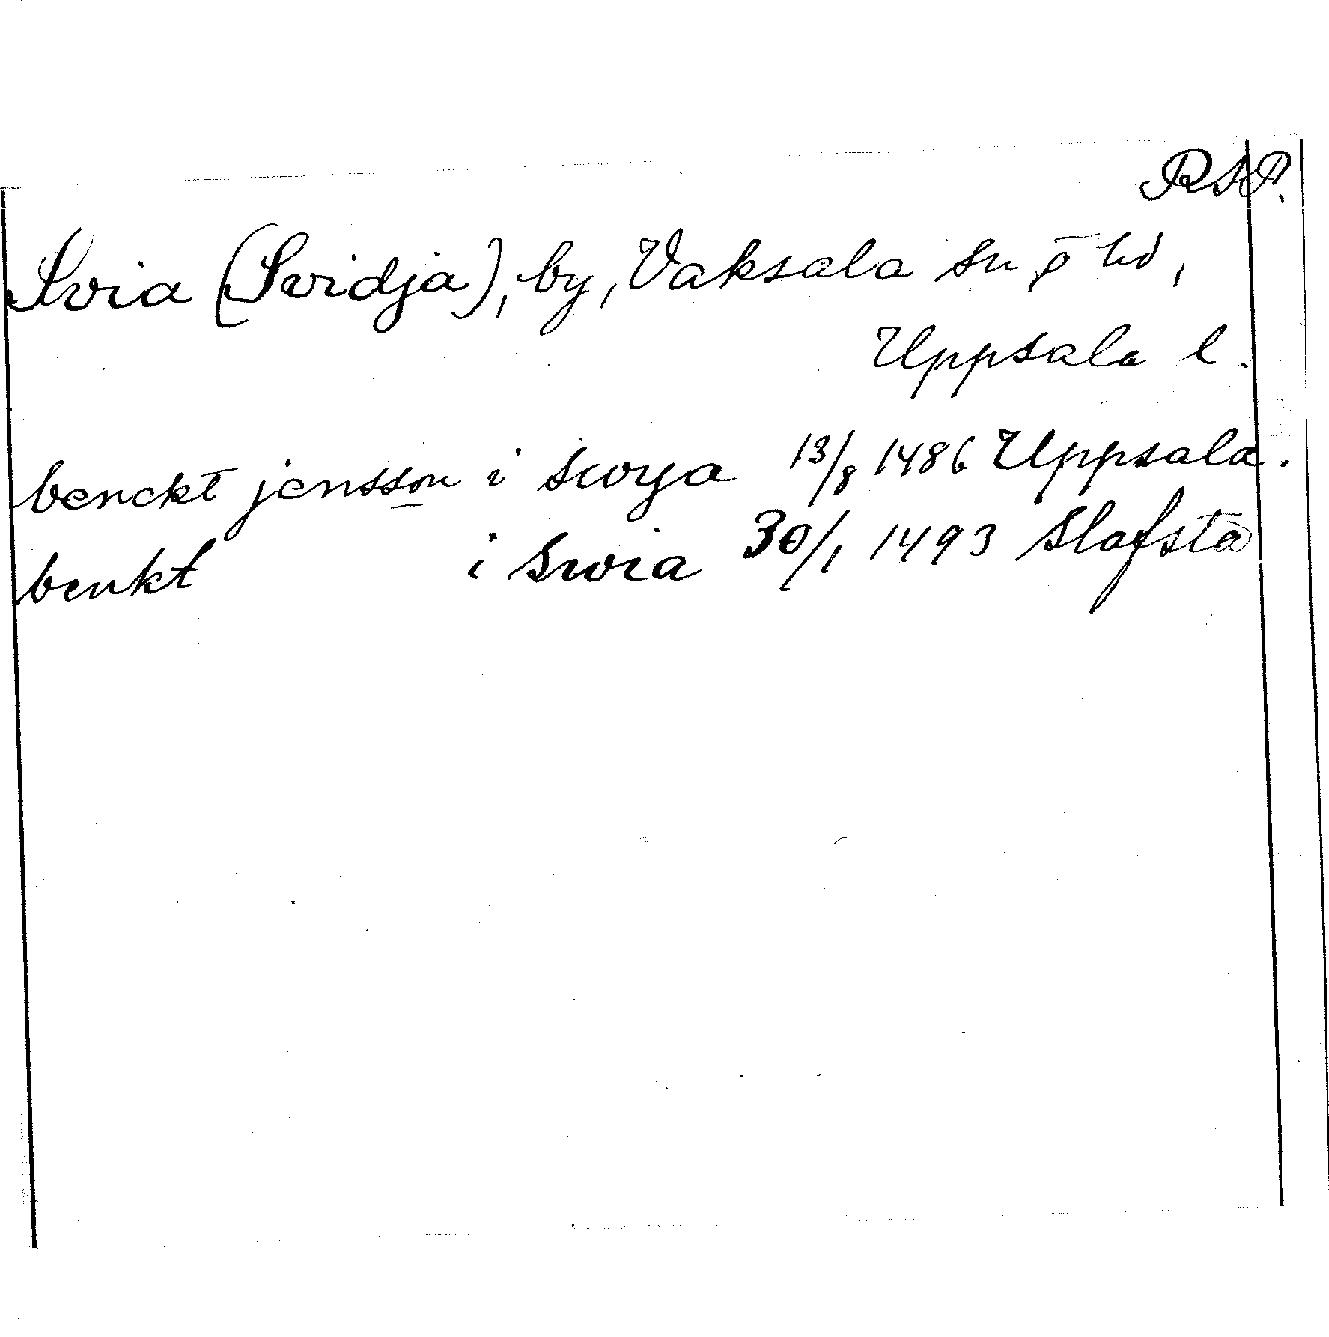 RAP.
Svia (Svidja), by, Vaksala sn o hd,
Uppsala l.
benckt jensson i swya 13/8 1486 Uppsala.
benkt i swia 30/1 1493 Slafsta